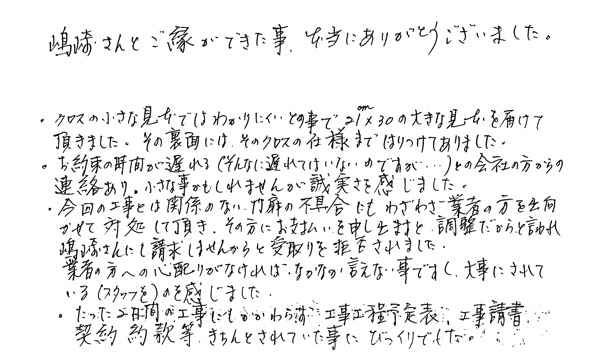 嶋崎さんとご縁ができた事、本当にありがとうございました。
・クロスの小さな見本ではわかりにくいとの事で21cm×30の大きな見本を届けて
頂きました。その裏面には、そのクロスの仕様まではりつけてありました。
・お約束の時間が遅れる(そんなに遅れてはいないのですが…)との会社の方からの
連絡あり。小さな事かもしれませんが誠実さを感じました。
・今回の工事とは関係のない、門扉の不具合にも わざわざ業者の方を出向
かせて対処して頂き、その方にお支払いを申し出ますと、調整だからと言われ
嶋崎さんにも請求しませんからと受取りを拒否されました。
業者の方への心配りがなければ、なかなか言えない事ですし、大事にされて
いる(スタッフを)のを感じました。
・たった2日間の工事にもかかわらず、工事工程予定表、工事請書
契約約款等、きちんとされていた事に びっくりでした。